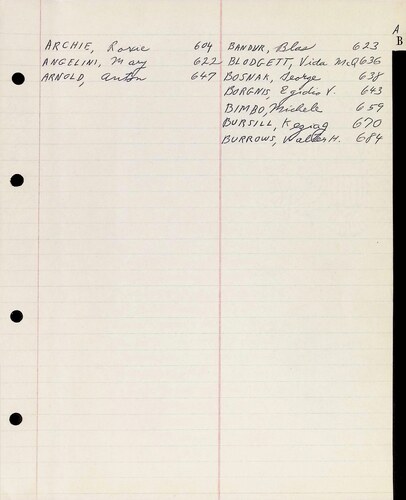 A
B
ARCHIE, 604
ANGELINI, Mary 622
ARNOLD, Anton 647
BANDUR, Blas 623
BLODGETT, Vida McQ 636
BOSNAK, George 638
BORGNIS, Egidio V. 643
BIMBO, Michele 659
BURSILL, 670
BURROWS, Walter H. 684